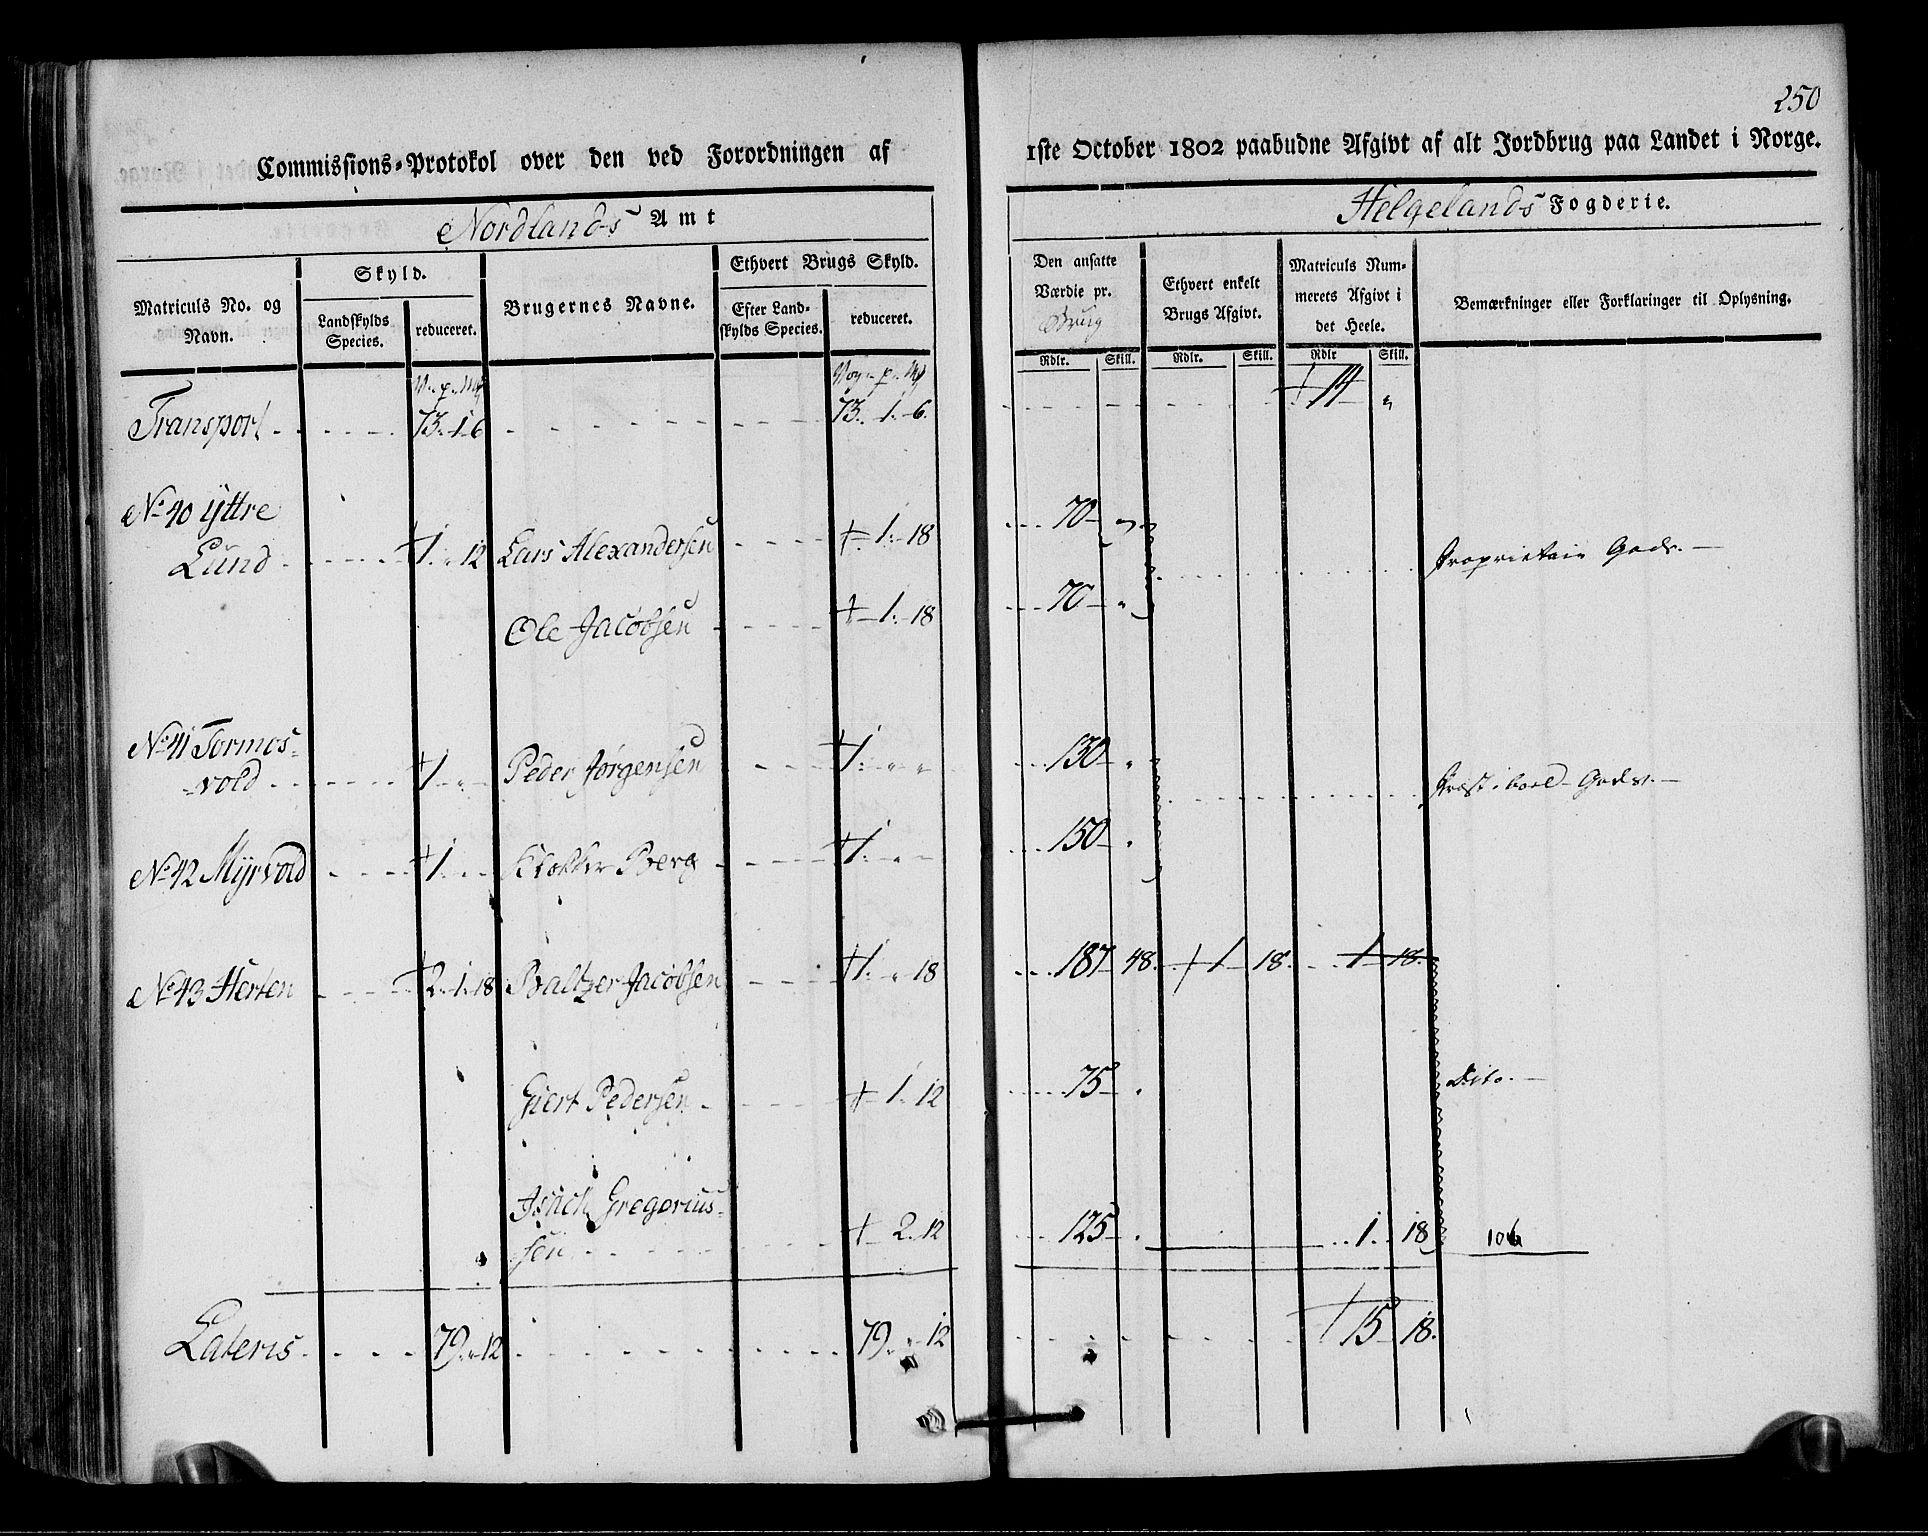 250
Commissions-Protokol over den ved Forordningen af 1ste October 1802 paabudne Afgivt af alt Jordbrug paa Landet i Norge.
Nordlands Amt
Helgelands Fogderie.
Matriculs No. og Navn.
Skyld.
Landskylds Species.
reduceret.
Brugernes Navne.
Ethvert Brugs Skyld.
Efter Landskylds Species.
reduceret.
Den ansatte Værdie pr. Brug
Ethvert enkelt Brugs Afgivt.
Matriculs Nummerets Afgivt i det Heele.
Bemærkninger eller Forklaringer til Oplysning.
Rdlr. Skill. Rdlr. Skill. Rdlr Skill.
V. p. M Vog. p. M
Transport 73. 1. 6 73. 1. 6. 14 "
No 40 Yttre
Lund 1. " 12 Lars Alexandersen 1. 18 70 " Proprietair Gods.
Ole Jacobsen 1. 18 70 "
No 41 Tormos-
vold 1. " Peder Jørgensen 1. " " 130 " Præstebord Gods.
No 42 Myrvold 1. " Klokker Berg 1. " " 150 "
No 43 Herten 2. 1. 18 Baltzer Jacobsen 1. " 18 187 48. 1 18. 1 18.
Giert Pedersen 1. 12 75 " Dito.
Isach Gregorius-
sen 2. 12 125 " 1. 18 106
Lateris 79. " 12 79. " 12 15 18.